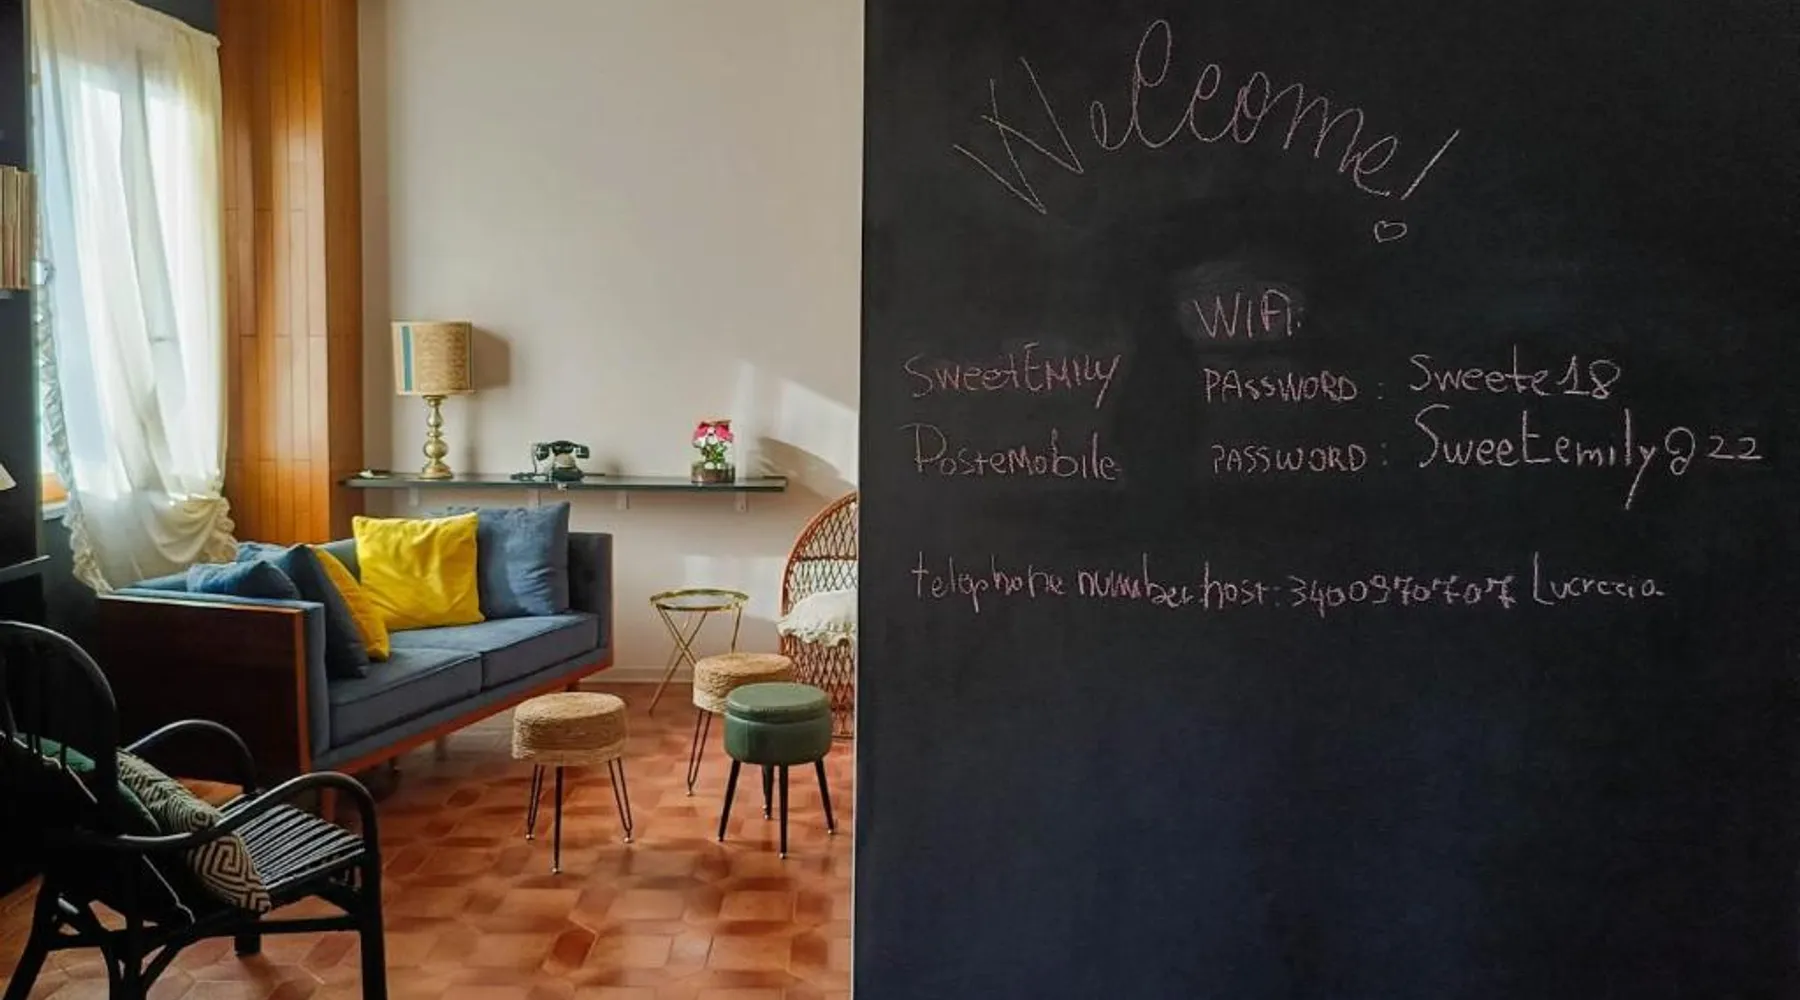 Welcome!
WIFI:
SweetEmily PASSWORD: Sweete18
Postemobile PASSWORD: Sweetemily@22
telephone number host: 3400970707 Lucrezia